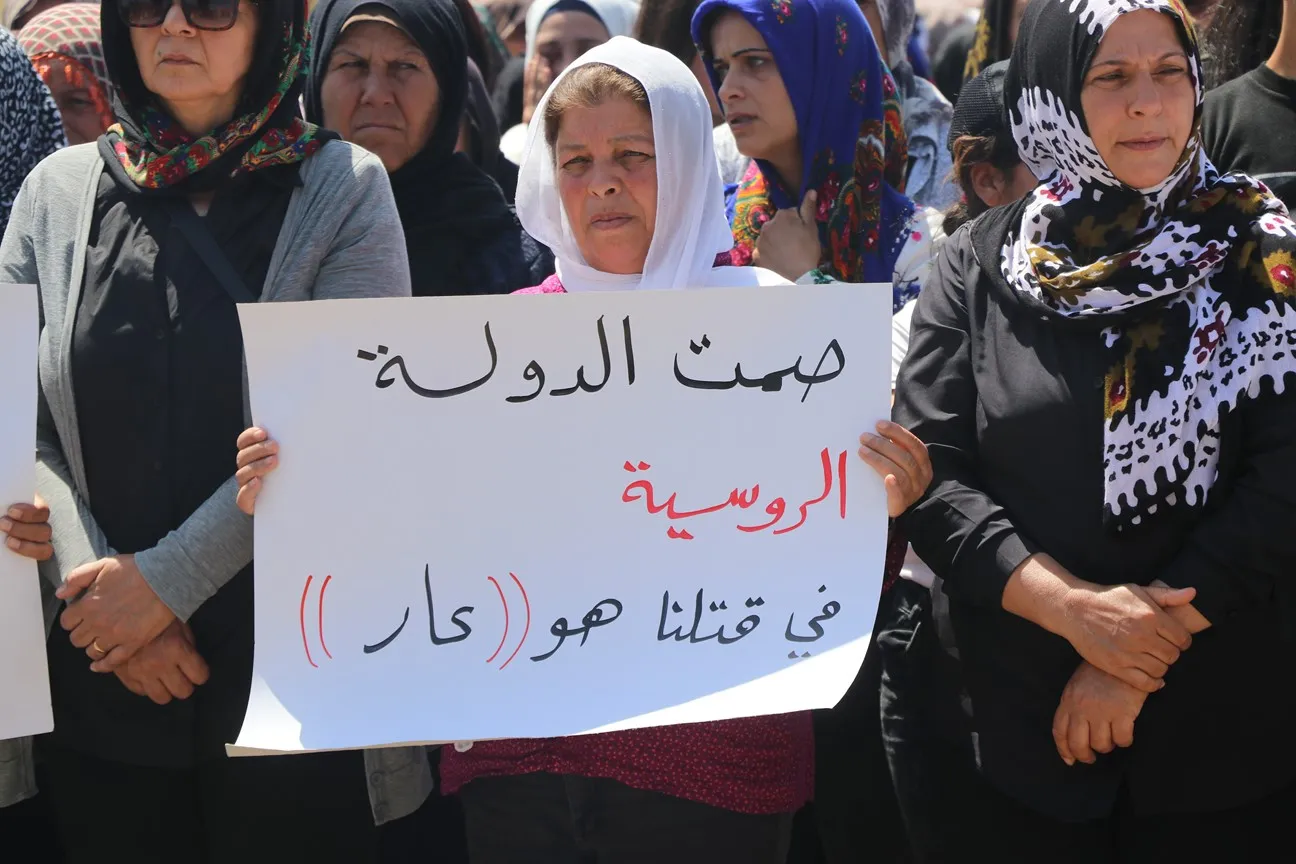 صمت الدولة
الروسية
في قتلنا هو ((عار))